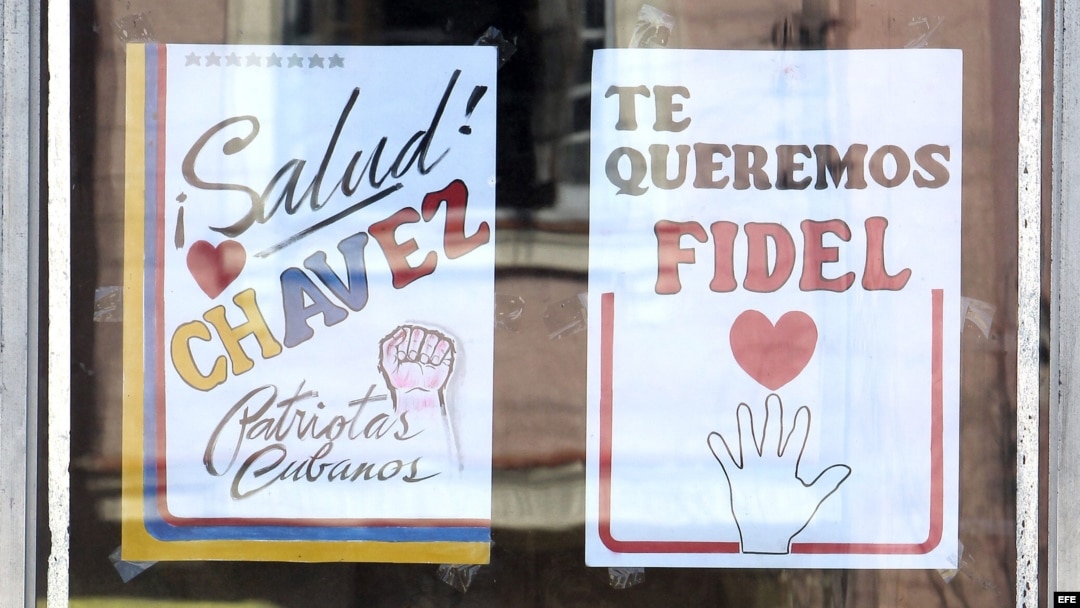 ¡Salud!
CHAVEZ
Patriotas
Cubanos
TE
QUEREMOS
FIDEL
EFE